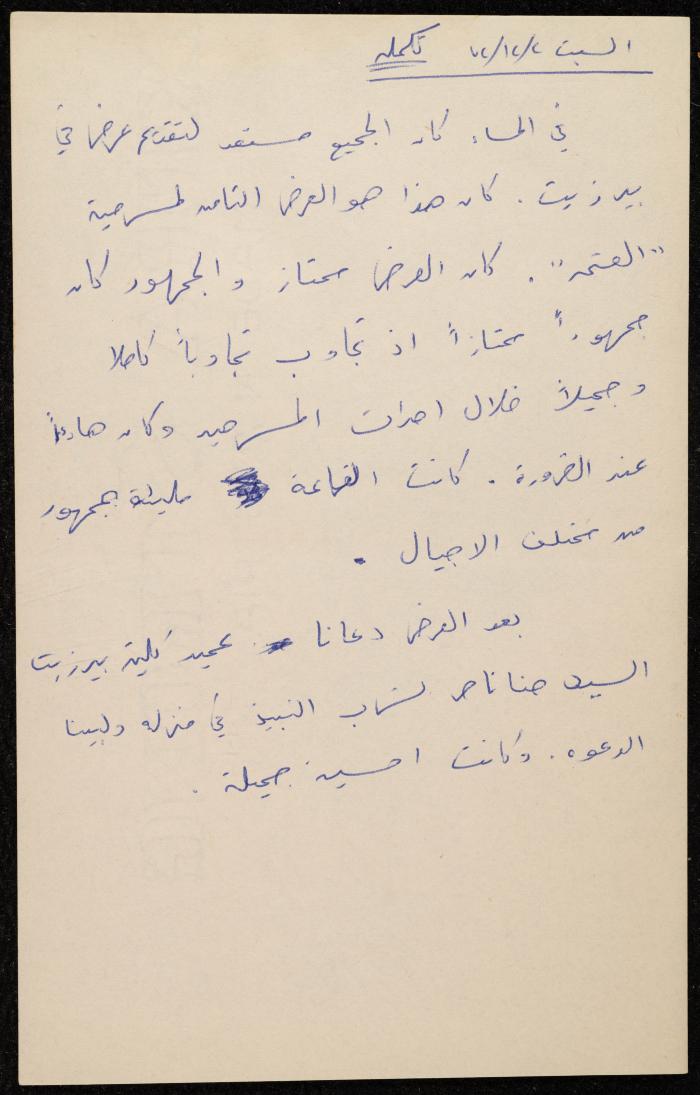 السبت ٧٢/١٢/٢ تكمله
في المساء كان الجميع مستعد لتقديم عرض في
بير زيت. كان هذا هو العرض الثامن لمسرحية
"العتمه". كان العرض ممتاز والجمهور كان
جمهوراً ممتازاً اذ تجاوب تجاوباً كاملا
وجميلاً خلال احداث المسرحيه وكان هادءاً
عند الضرورة. كانت القاعة مليئة بجمهور
من مختلف الاجيال.
بعد العرض دعانا عميد كلية بيرزيت
السيد حنا ناصر لشرب النبيذ في منزله ولبينا
الدعوه. وكانت امسية جميلة.